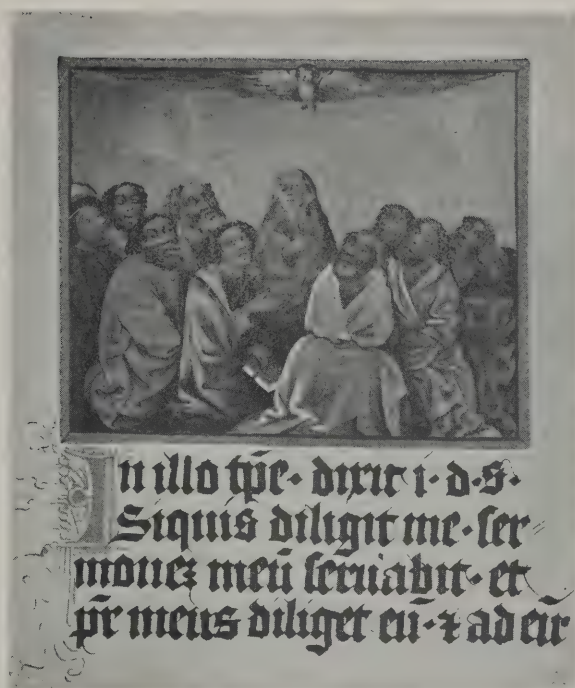 In illo tp̄e· dixit i·d·s·
Siquis diligit me·ser⸗
monez meū seruabit· et
pr̄ meus diliget eū·⁊ ad eū